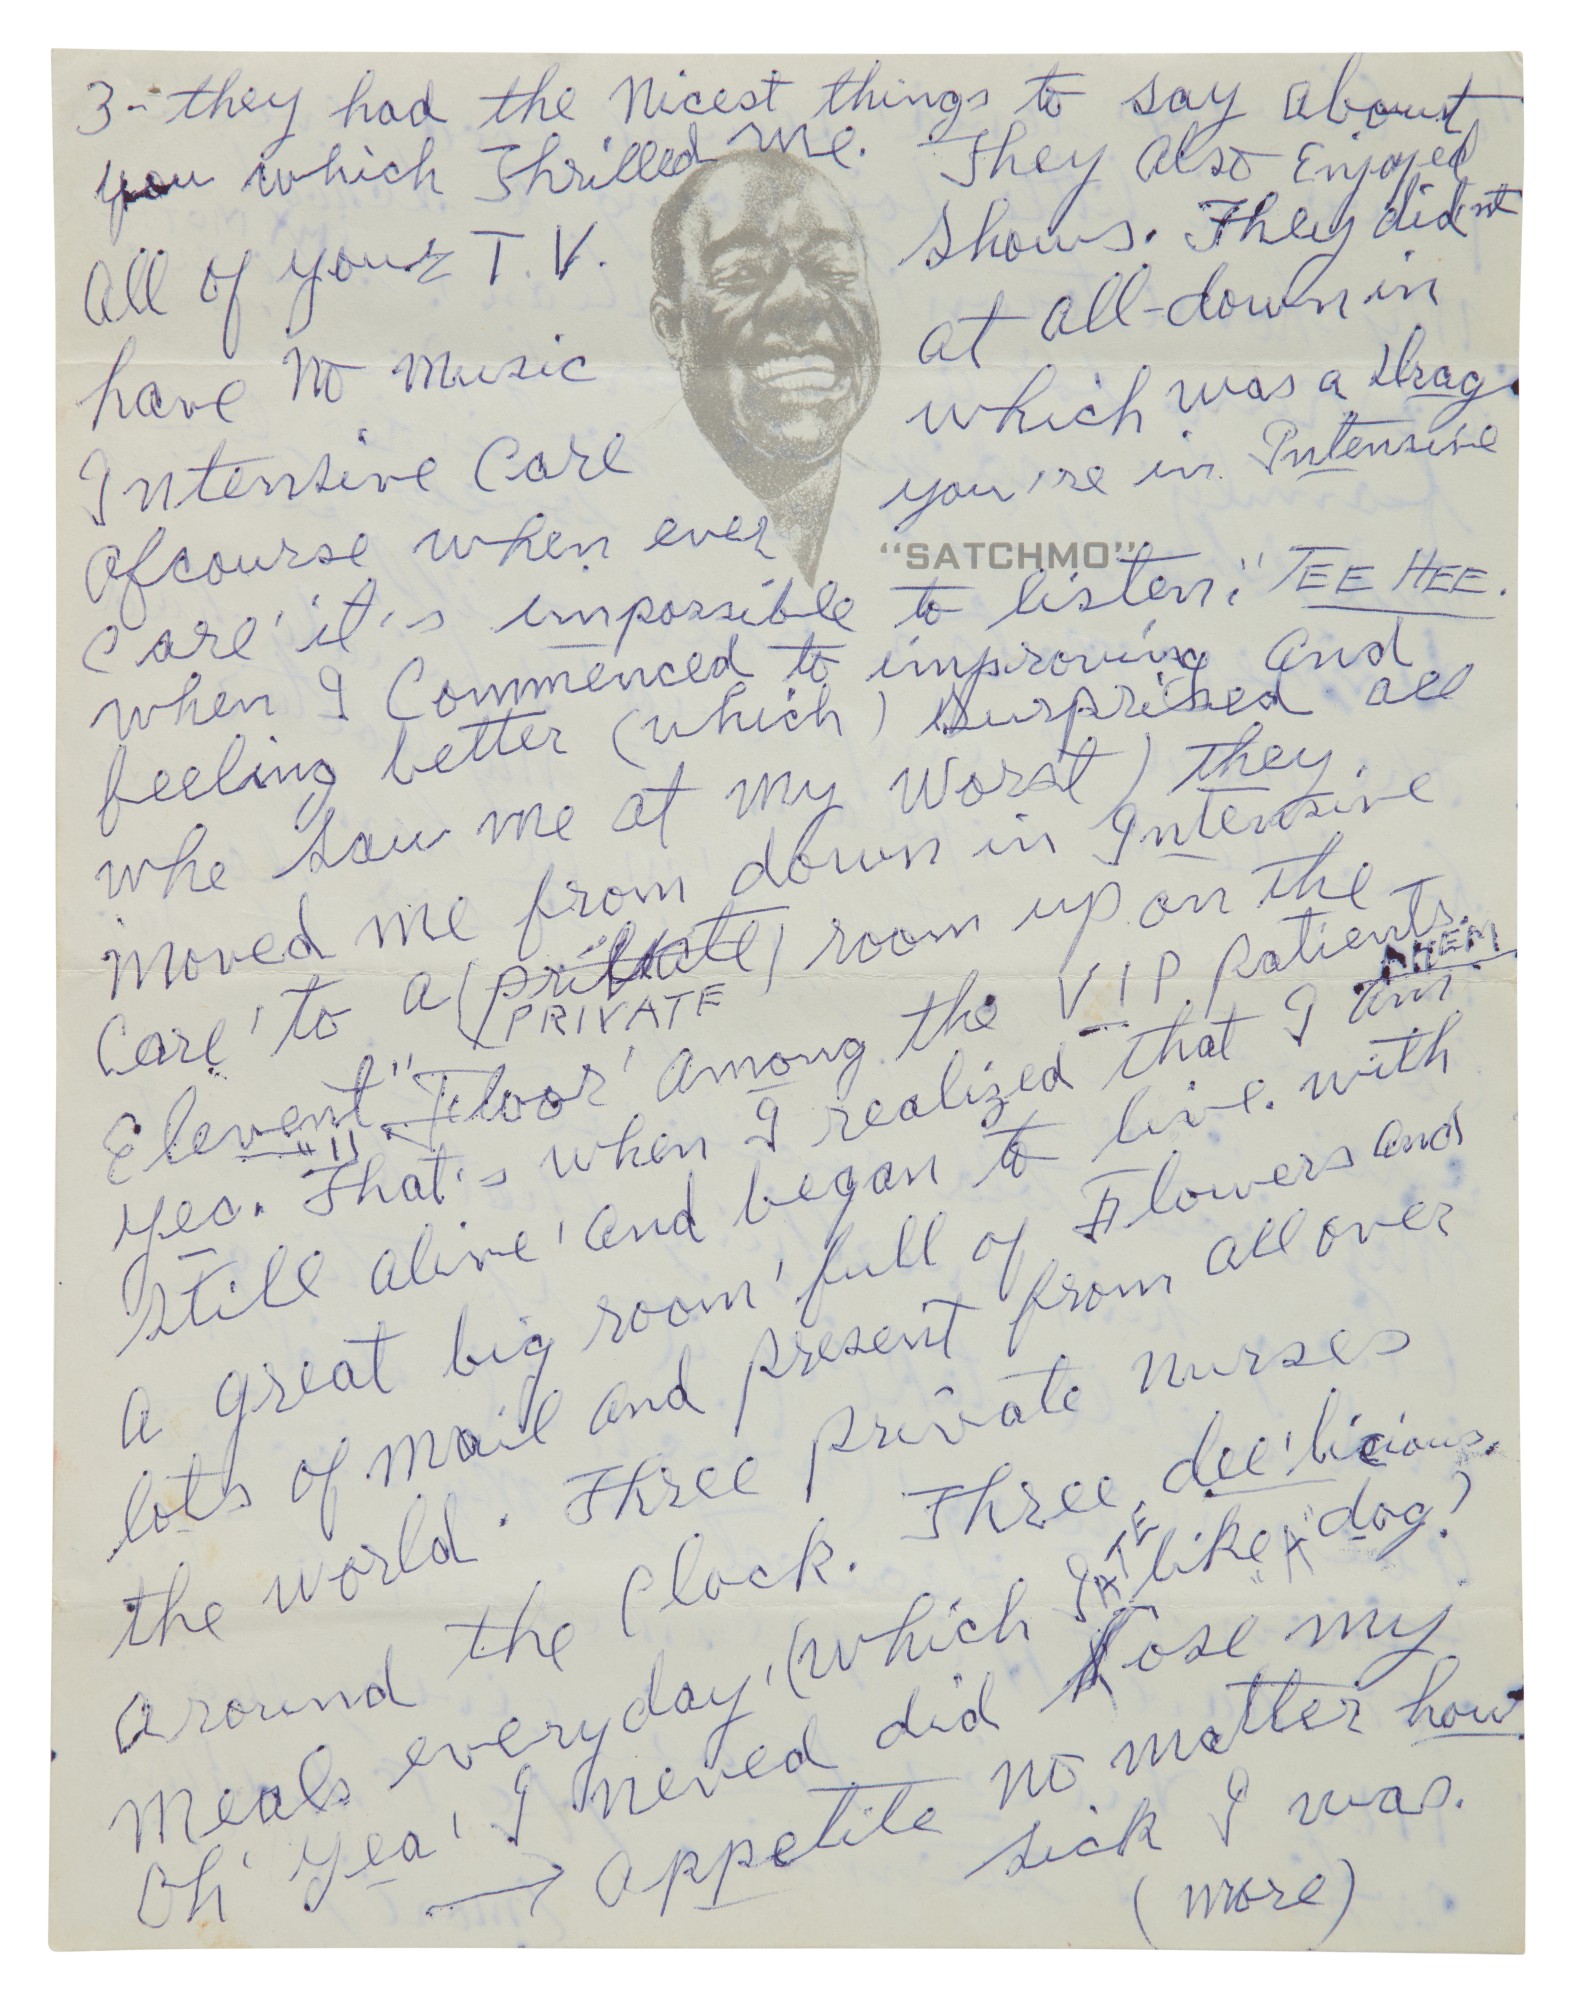 3- they had the Nicest things to say about
you which Thrilled me. They Also Enjoyed
All of your T.V. Shows. They didn't
have No Music at all-down in
Intensive Care which was a Drag.
Ofcourse when ever you're in Intensive
"SATCHMO"
Care' it's impossible to listen;" TEE HEE.
when I Commenced to improving and
feeling better (which) Surprised all
who saw me at my Worst) they
moved me from down in Intensive
Care' to a (private) room up on the
PRIVATE
Elevent" Floor' among the VIP Patients.
"11" AHEM
Yea. That's when I realized that I am
still alive' and began to live. with
a great big room' full of Flowers and
lots of Mail and present from all over
the world. Three private Nurses
around the Clock. Three dee'licious.
Meals everyday' (which I ATE like "A" dog?
Oh' Yea' I neved did lose my
→ appetite No matter how
sick I was.
(more)